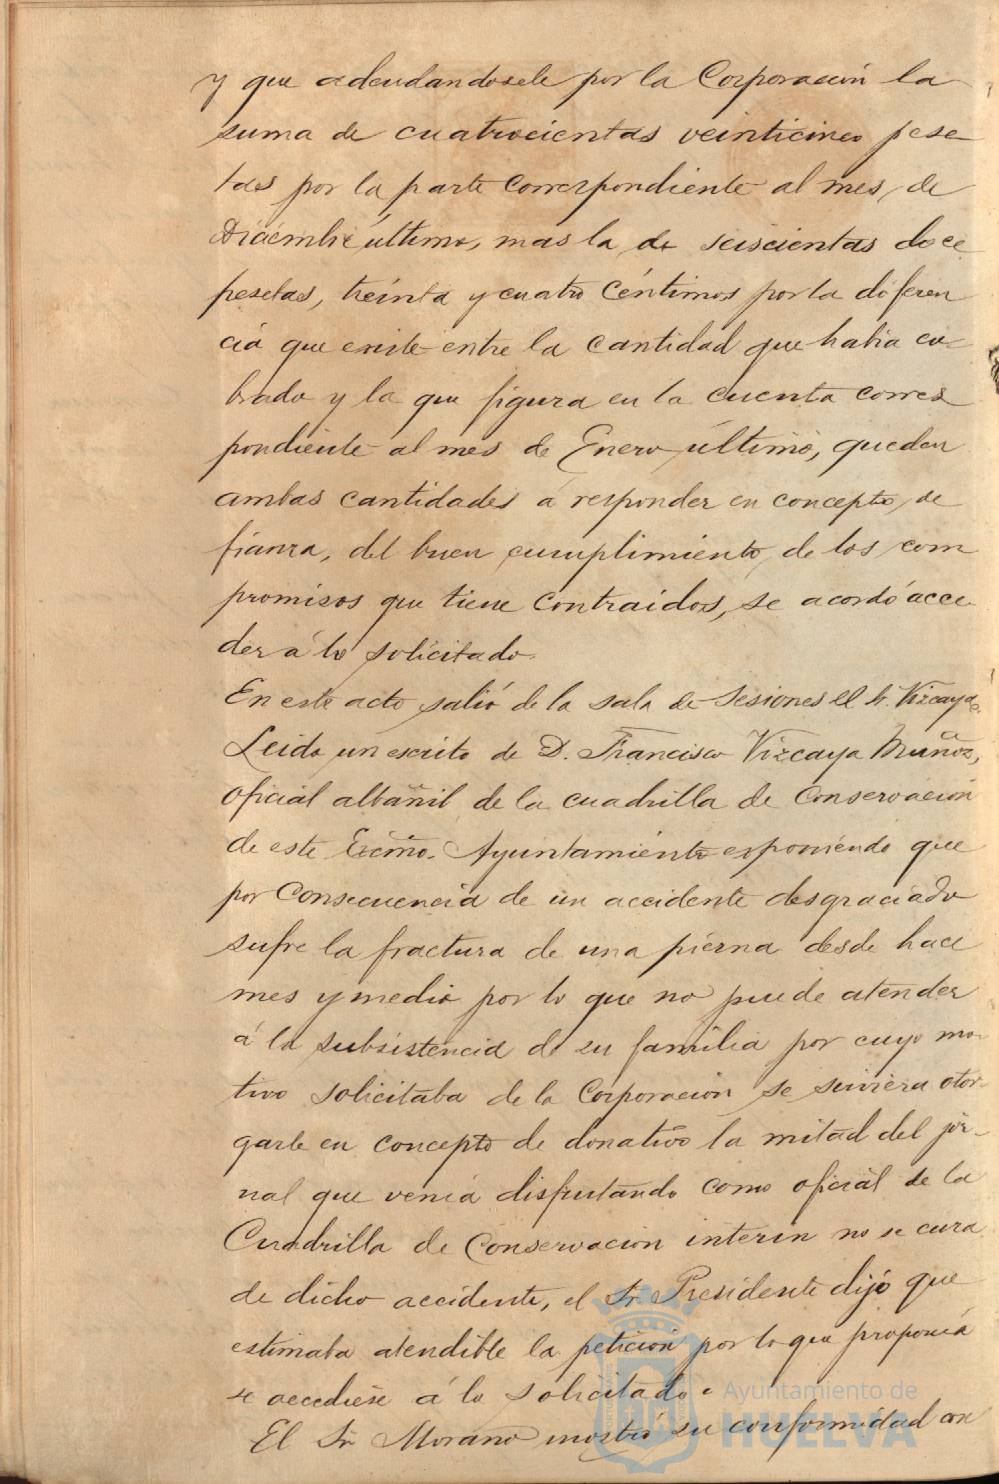 y que adeudandosele por la Corporación la
suma de cuatrocientas veinticinco pese-
tas por la parte correspondiente al mes de
Diciembre último, mas la de seiscientas doce
pesetas, treinta y cuatro céntimos por la diferen
cia que existe entre la cantidad que habia co-
brado y la que figura en la cuenta corres
pondiente al mes de Enero último, quedan
ambas cantidades á responder en concepto de
fianza, del buen cumplimiento de los com
promisos que tiene contraidos, se acordó acce-
der á lo solicitado.
En este acto salió de la sala de Sesiones el Sr. Vizcaya.
Leido un escrito de D. Francisco Vizcaya Muñoz,
oficial albañil de la cuadrilla de Conservacion
de este Excmo. Ayuntamiento exponiendo que
por Consecuencia de un accidente desgraciado
sufre la fractura de una pierna desde hace
mes y medio por lo que no puede atender
á la subsistencia de su familia por cuyo mo-
tivo solicitaba de la Corporación se sirviera otor-
garle en concepto de donativo la mitad del jor-
nal que venia disfrutando como oficial de la
Cuadrilla de Conservacion interin no se cura
de dicho accidente, el Sr. Presidente dijo que
estimaba atendible la petición por lo que proponia
se accediese á lo solicitado.
El Sr. Morano mostró su conformidad con
Ayuntamiento de
HUELVA